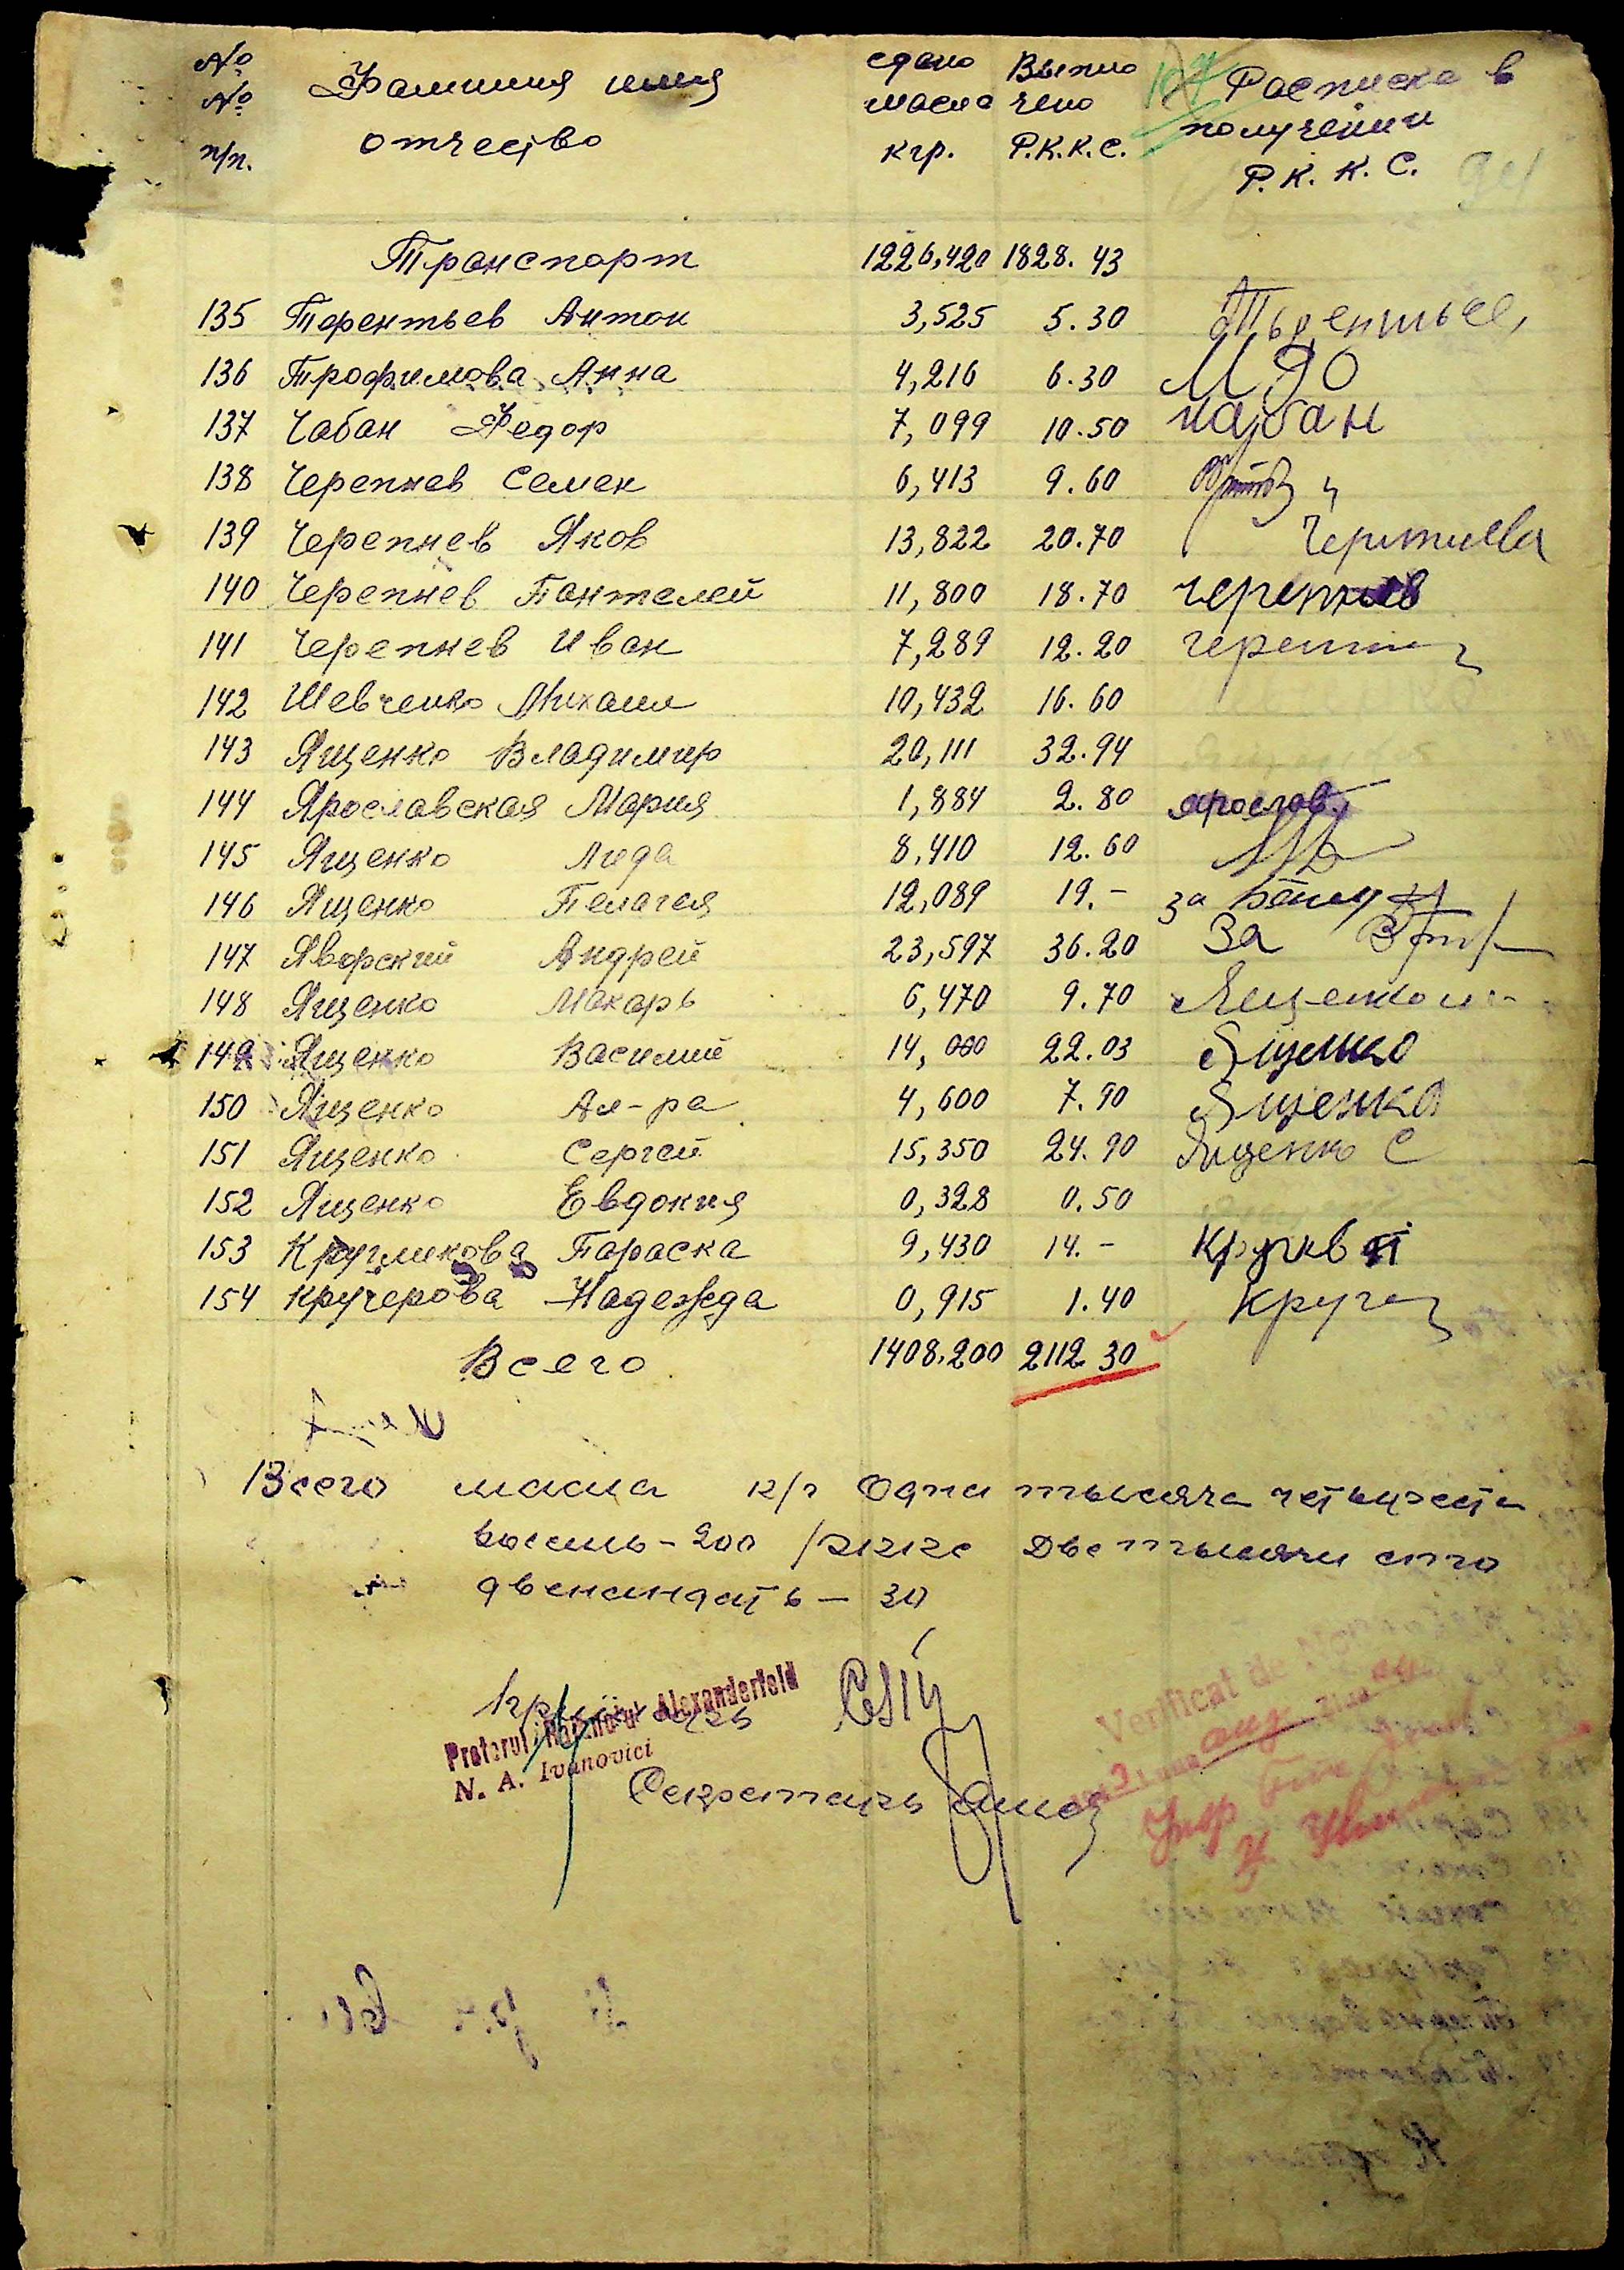 № № п/п. Фамилия имя отчество сдано масла кгр. Выпла чено Р.К.К.С. Расписка в получении Р.К.К.С.
94
Транспорт 1226,420 1828.43
135 Терентьев Антон 3,525 5.30
136 Трофимова Анна 4,216 6.30
137 Чабан Федор 7,099 10.50 Чабан
138 Черепнев Семен 6,413 9.60
139 Черепнев Яков 13,822 20.70 Черепнева
140 Черепнев Пантелей 11,800 18.70 Черепнев
141 Черепнев Иван 7,289 12.20 Черепн
142 Шевченко Михаил 10,432 16.60
143 Ященко Владимир 20,111 32.94
144 Ярославская Мария 1,884 2.80 Ярослав
145 Ященко Лида 8,410 12.60
146 Ященко Пелагея 12,089 19.- за
147 Яворский Андрей 23,597 36.20 За
148 Ященко Макарь 6,470 9.70 Ященко
149 Ященко Василий 14,000 22.03 Ященко
150 Ященко Ал-ра 4,600 7.90 Ященко
151 Ященко Сергей 15,350 24.90 Ященко С
152 Ященко Евдокия 0,328 0.50
153 Кругликова Параска 9,430 14.-
154 Кручерова Надежда 0,915 1.40
Всего 1408,200 2112.30
Всего масла к/г Одна тысяча четыреста
восемь-200 /РККС Две тысячи сто
двенандать - 30
Pretorul Raionului Alexanderfeld
N. A. Ivanovici
Секретарь
Verificat de